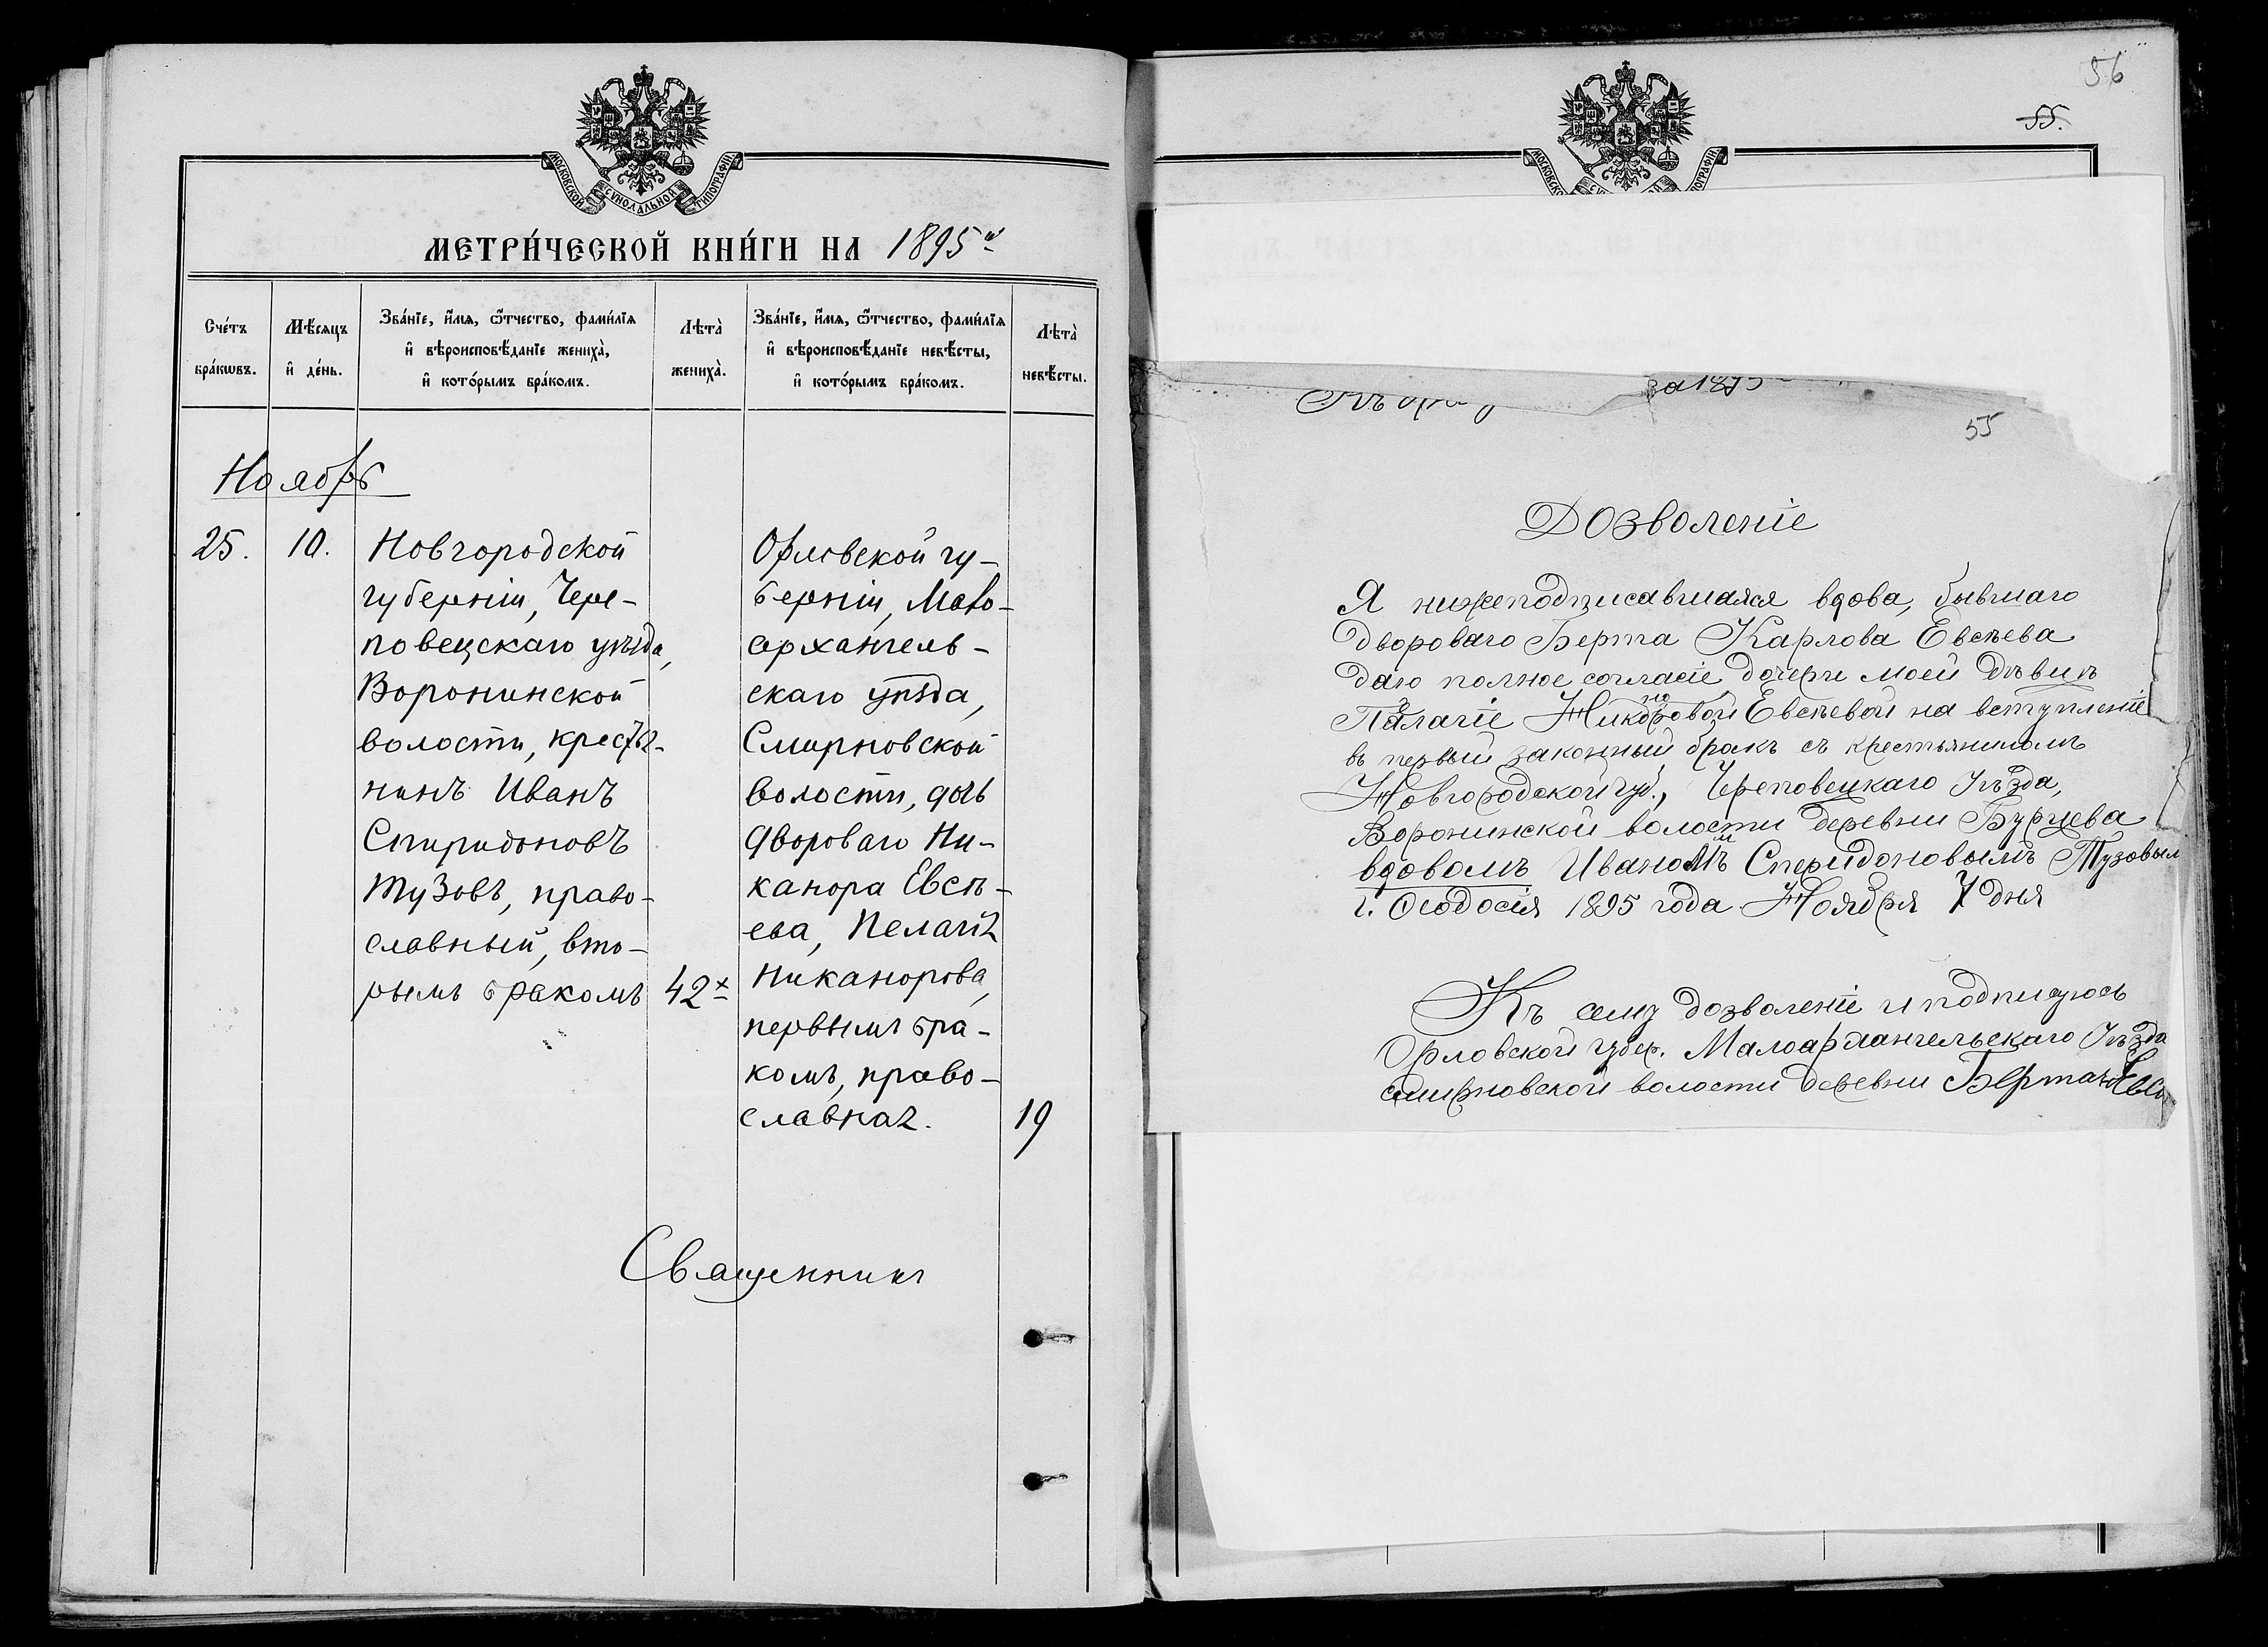 МОСКОВСКОЙ СѴНОДАЛЬНОЙ ТИПОГРАФІИ
МЕТРИ́ЧЕСКОЙ КНИ́ГИ НА 1895й
Сче́тъ
бра́кѡвъ.
Мѣ́сяцъ
и҆ де́нь.
Зва́нїе, и҆́мѧ, ѻ҆́тчество, фами́лїѧ
и҆ вѣроисповѣ́данїе жениха̀,
и҆ кото́рымъ бра́комъ.
Лѣта̀
жениха̀.
Зва́нїе, и҆́мѧ, ѻ҆́тчество, фами́лїѧ
и҆ вѣроисповѣ́данїе невѣ́сты,
и҆ кото́рымъ бра́комъ.
Лѣта̀
невѣ́сты.
Ноябрь
25.
10.
Новгородской
губерніи, Чере-
повецскаго уѣзда,
Воронинской
волости, крестья-
нинъ Иванъ
Спиридоновъ
Тузовъ, право-
славный, вто-
рымъ бракомъ
42х
Орловской гу-
берніи, Мало-
архангель-
скаго уѣзда,
Смирновской
волости, дочь
двороваго Ни-
канора Евсѣ-
ева, Пелагія
Никанорова,
первымъ бра-
комъ, право-
славная.
19
Священникъ
56
55.
за 1895
55
Дозволеніе
Я нижеподписавшаяся вдова, бывшаго
двороваго Берта Карлова Евсѣева
даю полное согласіе дочери моей дѣвицѣ
Палагіе Никоноровой Евсѣевой на вступленіе
въ первый законный бракъ съ крестьяниномъ
Новгородской губ., Череповецкаго Уѣзда,
Воронинской волости деревни Бурцева
вдовомъ Иваномъ Спиридоновымъ Тузовым
г. Ѳеодосія 1895 года Ноября 7 дня
Къ сему дозволеніе и подписуюсь
Орловской губер. Малоархангельскаго Уѣзда
смирновской волости деревни Берта